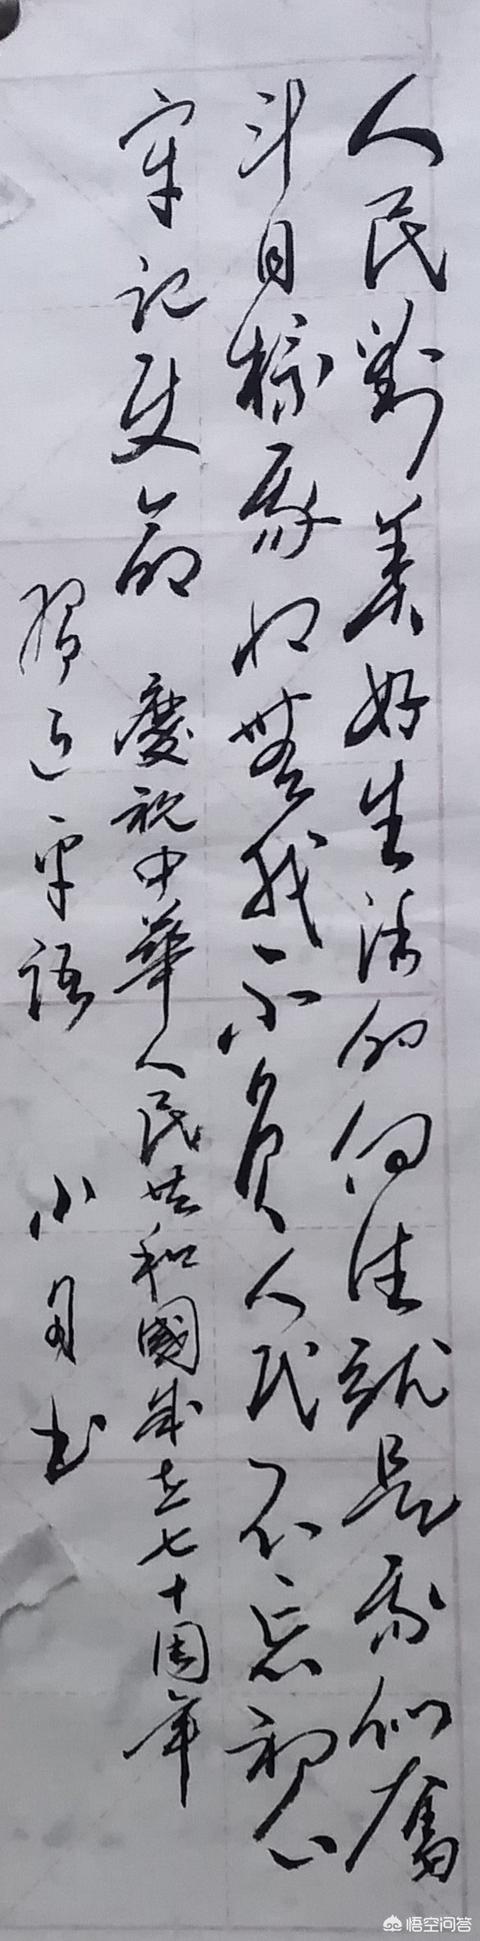 人民對美好生活的向往就是我們奮
斗目标我將無我不負人民不忘初心
牢记使命 慶祝中華人民共和國成立七十周年
習近平語 小月书
悟空问答